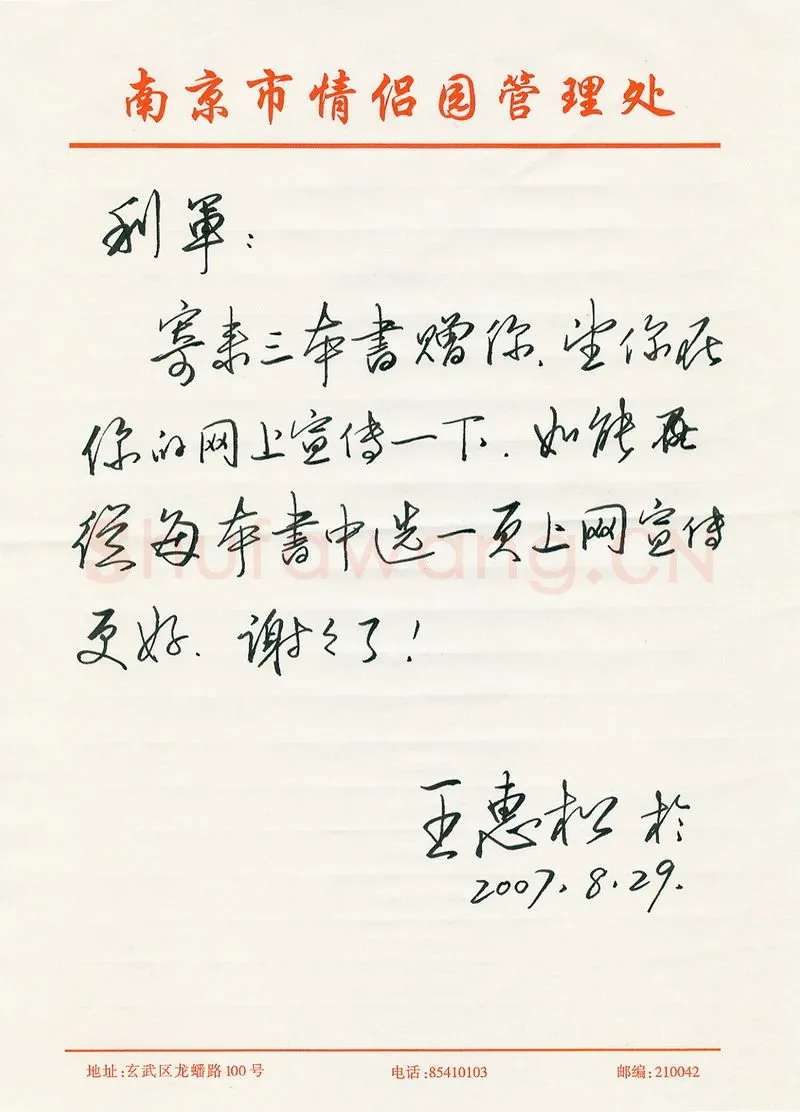 南京市情侣园管理处
利軍：
寄来三本書赠你，望你在
你的网上宣传一下，如能再
從每本書中选一页上网宣传
更好，谢々了！
shufawang.CN
王惠松 於
2007.8.29.
地址:玄武区龙蟠路100号 电话:85410103 邮编:210042